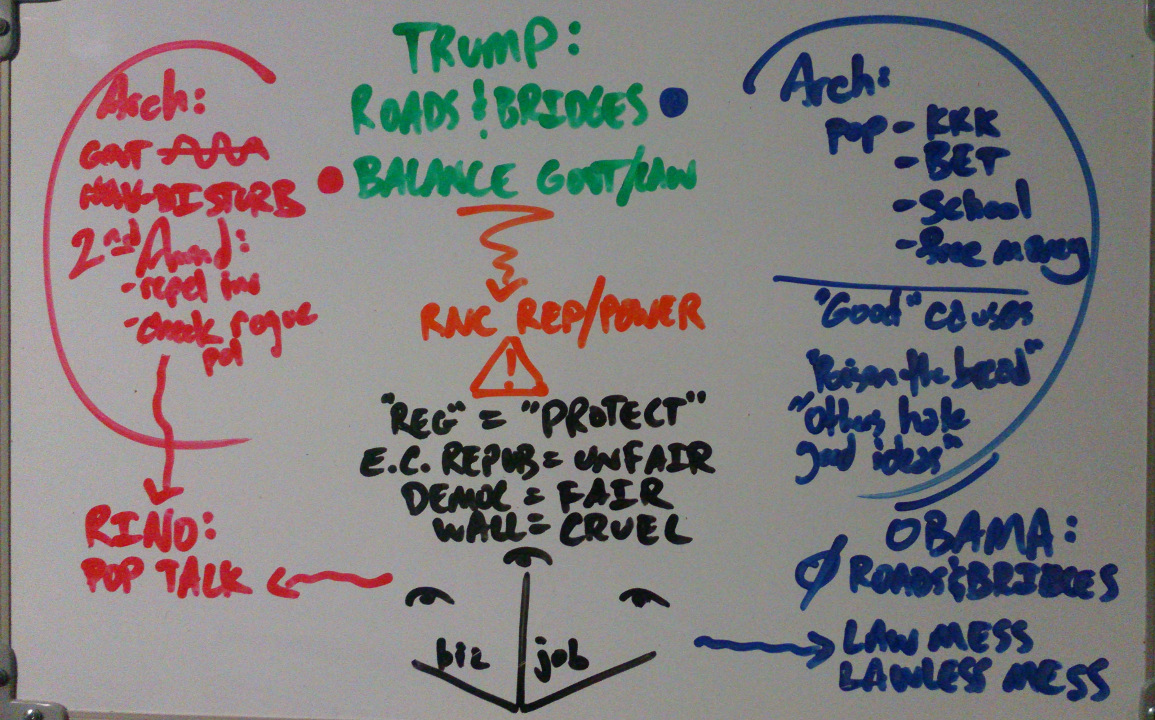 Arch:
GOVT
NAV-DISTURB
2nd Amd:
- repel inv
- check rogue
pol
RINO:
POP TALK
TRUMP:
ROADS & BRIDGES
BALANCE GOVT/LAW
RNC REP/POWER
!
"REG" = "PROTECT"
E.C. REPUB = UNFAIR
DEMOC = FAIR
WALL = CRUEL
biz job
Arch:
POP - KKK
- BET
- School
- free money
"Good" causes
"Poison the bread"
"Others hate
good ideas"
OBAMA:
ROADS & BRIDGES
LAW MESS
LAWLESS MESS